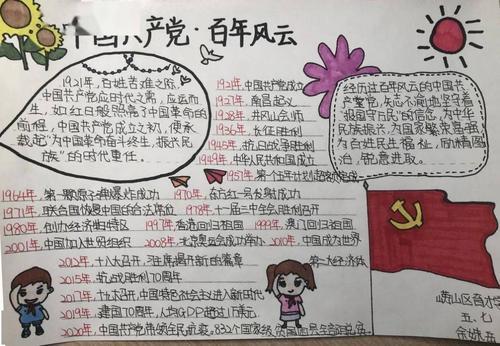 中国共产党·百年风云
1921年,百姓苦难之际,
中国共产党应时代之需,应运而
生,如红日般照亮了中国革命的
前程,中国共产党成立之初,便承
载起“为中国革命奋斗终生,振兴民
族”的时代重任。
1921年,中国共产党成立
1927年,南昌起义
1928年,井冈山会师
1936年,长征胜利
1945年,抗日战争胜利
1949年,中华人民共和国成立
1957年,第一个五年计划超额完成
经历过百年风云的中国共
产党,矢志不渝地坚守着
“报国守民”的信念,为中华
民族振兴,为国家繁荣富强
为百姓民生福祉,励精图
治,锐意进取。
1964年,第一颗原子弹爆炸成功 1970年,东方红一号发射成功
1971年,联合国恢复中国合法席位 1978年,十一届三中全会胜利召开
1980年,创办经济特区 1997年香港回归祖国 1999年,澳门回归祖国
2001年,中国加入世贸组织 2008年,北京奥运会成功举办 2010年,中国成为世界
第二大经济体
2012年,十八大召开,
揭开新的篇章
2015年,抗战胜利70周年
2017年,十九大召开,中国特色社会主义进入新时代
2019年,建国70周年,人均GDP超过1万美元
2020年,中国共产党带领全民抗疫。832个国家级贫困县
崂山区
五.七